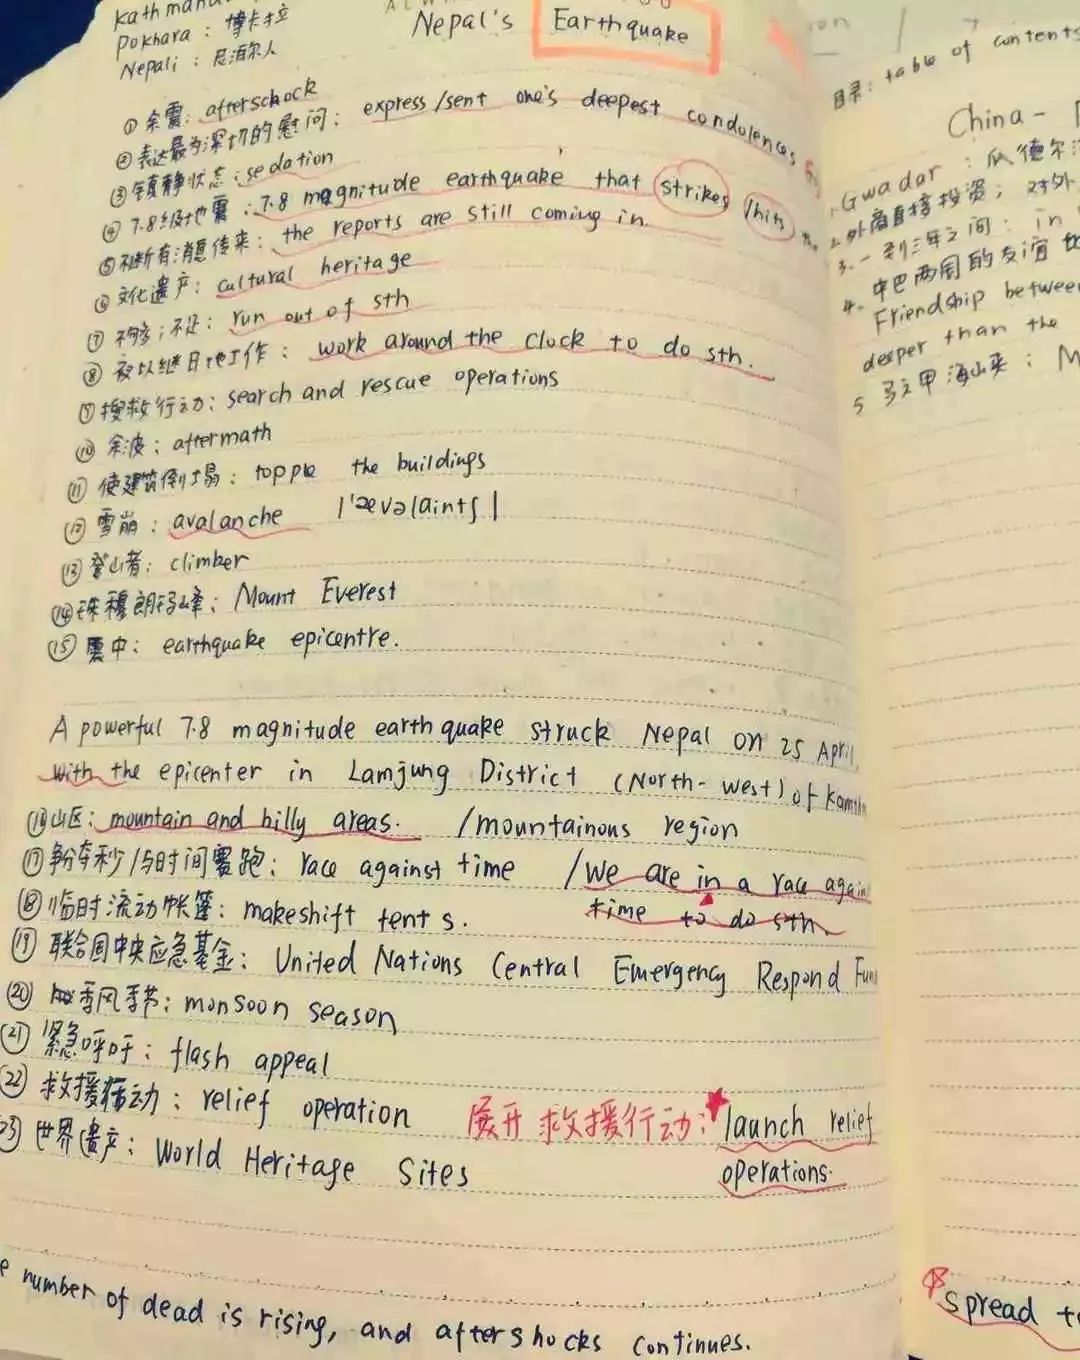 Kathman
Pokhara : 博卡拉
Nepali : 尼泊尔人
Nepal's Earthquake
① 余震: afterschock
② 表达最为深切的慰问: express/sent one's deepest condolences
③ 镇静状态: sedation
④ 7.8级地震: 7.8 magnitude earthquake that strikes /hits
⑤ 不断有消息传来: the reports are still coming in.
⑥ 文化遗产: cultural heritage
⑦ 不够;不足: run out of sth
⑧ 夜以继日地工作: work around the clock to do sth.
⑨ 搜救行动: search and rescue operations
⑩ 余波: aftermath
⑪ 使建筑倒塌: topple the buildings
⑫ 雪崩: avalanche |'ævəlaintʃ|
⑬ 登山者: climber
⑭ 珠穆朗玛峰: Mount Everest
⑮ 震中: earthquake epicentre.
A powerful 7.8 magnitude earthquake struck Nepal on 25 April,
with the epicenter in Lamjung District (North-west) of
⑯ 山区: mountain and hilly areas. /mountainous region
⑰ 争分夺秒/与时间赛跑: race against time /we are in a race again
time to do sth
⑱ 临时流动帐篷: makeshift tents.
⑲ 联合国中央应急基金: United Nations Central Emergency Respond Fun
⑳ 季风季节: monsoon season
㉑ 紧急呼吁: flash appeal
㉒ 救援活动: relief operation 展开救援行动: launch relief
operations.
㉓ 世界遗产: World Heritage Sites
e number of dead is rising, and aftershocks continues.
目录: table of contents
China-
1. Gwadar : 瓜德尔
2. 外商直接投资; 对外
3. 一到三年之间: in
4. 中巴两国的友谊
Friendship between
deeper than the
5
spread t